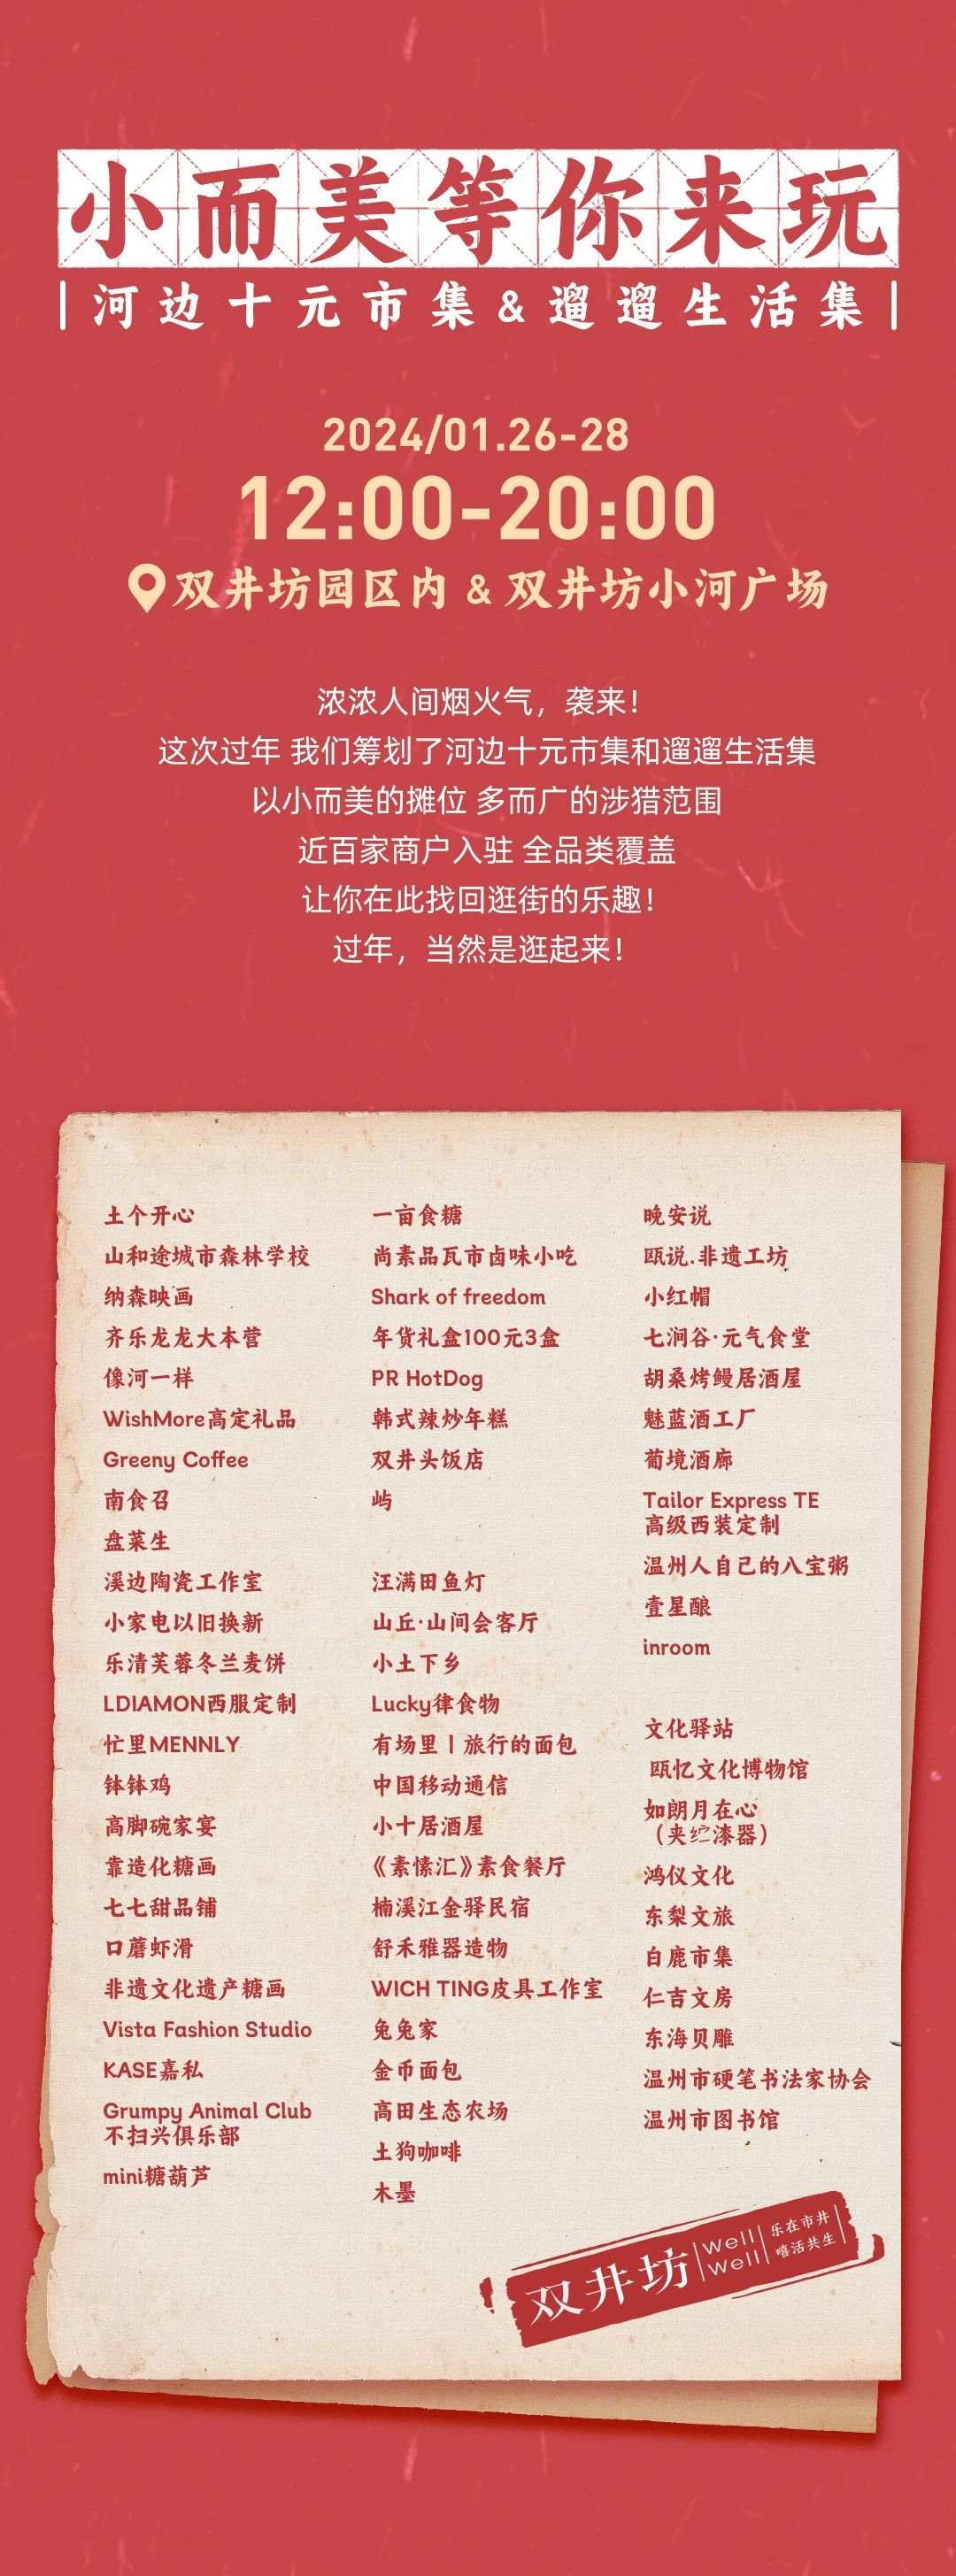 小而美等你来玩
河边十元市集&遛遛生活集
2024/01.26-28
12:00-20:00
双井坊园区内 & 双井坊小河广场
浓浓人间烟火气，袭来！
这次过年 我们筹划了河边十元市集和遛遛生活集
以小而美的摊位 多而广的涉猎范围
近百家商户入驻 全品类覆盖
让你在此找回逛街的乐趣！
过年，当然是逛起来！
土个开心
山和途城市森林学校
纳森映画
齐乐龙龙大本营
像河一样
WishMore高定礼品
Greeny Coffee
南食召
盘菜生
溪边陶瓷工作室
小家电以旧换新
乐清芙蓉冬兰麦饼
LDIAMON西服定制
忙里MENNLY
钵钵鸡
高脚碗家宴
靠造化糖画
七七甜品铺
口蘑虾滑
非遗文化遗产糖画
Vista Fashion Studio
KASE嘉私
Grumpy Animal Club
不扫兴俱乐部
mini糖葫芦
一亩食糖
尚素品瓦市卤味小吃
Shark of freedom
年货礼盒100元3盒
PR HotDog
韩式辣炒年糕
双井头饭店
屿
汪满田鱼灯
山丘·山间会客厅
小土下乡
Lucky律食物
有场里丨旅行的面包
中国移动通信
小十居酒屋
《素愫汇》素食餐厅
楠溪江金驿民宿
舒禾雅器造物
WICH TING皮具工作室
兔兔家
金币面包
高田生态农场
土狗咖啡
木墨
晚安说
瓯说.非遗工坊
小红帽
七涧谷·元气食堂
胡桑烤鳗居酒屋
魅蓝酒工厂
葡境酒廊
Tailor Express TE
高级西装定制
温州人自己的八宝粥
壹星酿
inroom
文化驿站
瓯忆文化博物馆
如朗月在心
（夹纻漆器）
鸿仪文化
东梨文旅
白鹿市集
仁吉文房
东海贝雕
温州市硬笔书法家协会
温州市图书馆
双井坊
Well
Well
乐在市井
嘻活共生